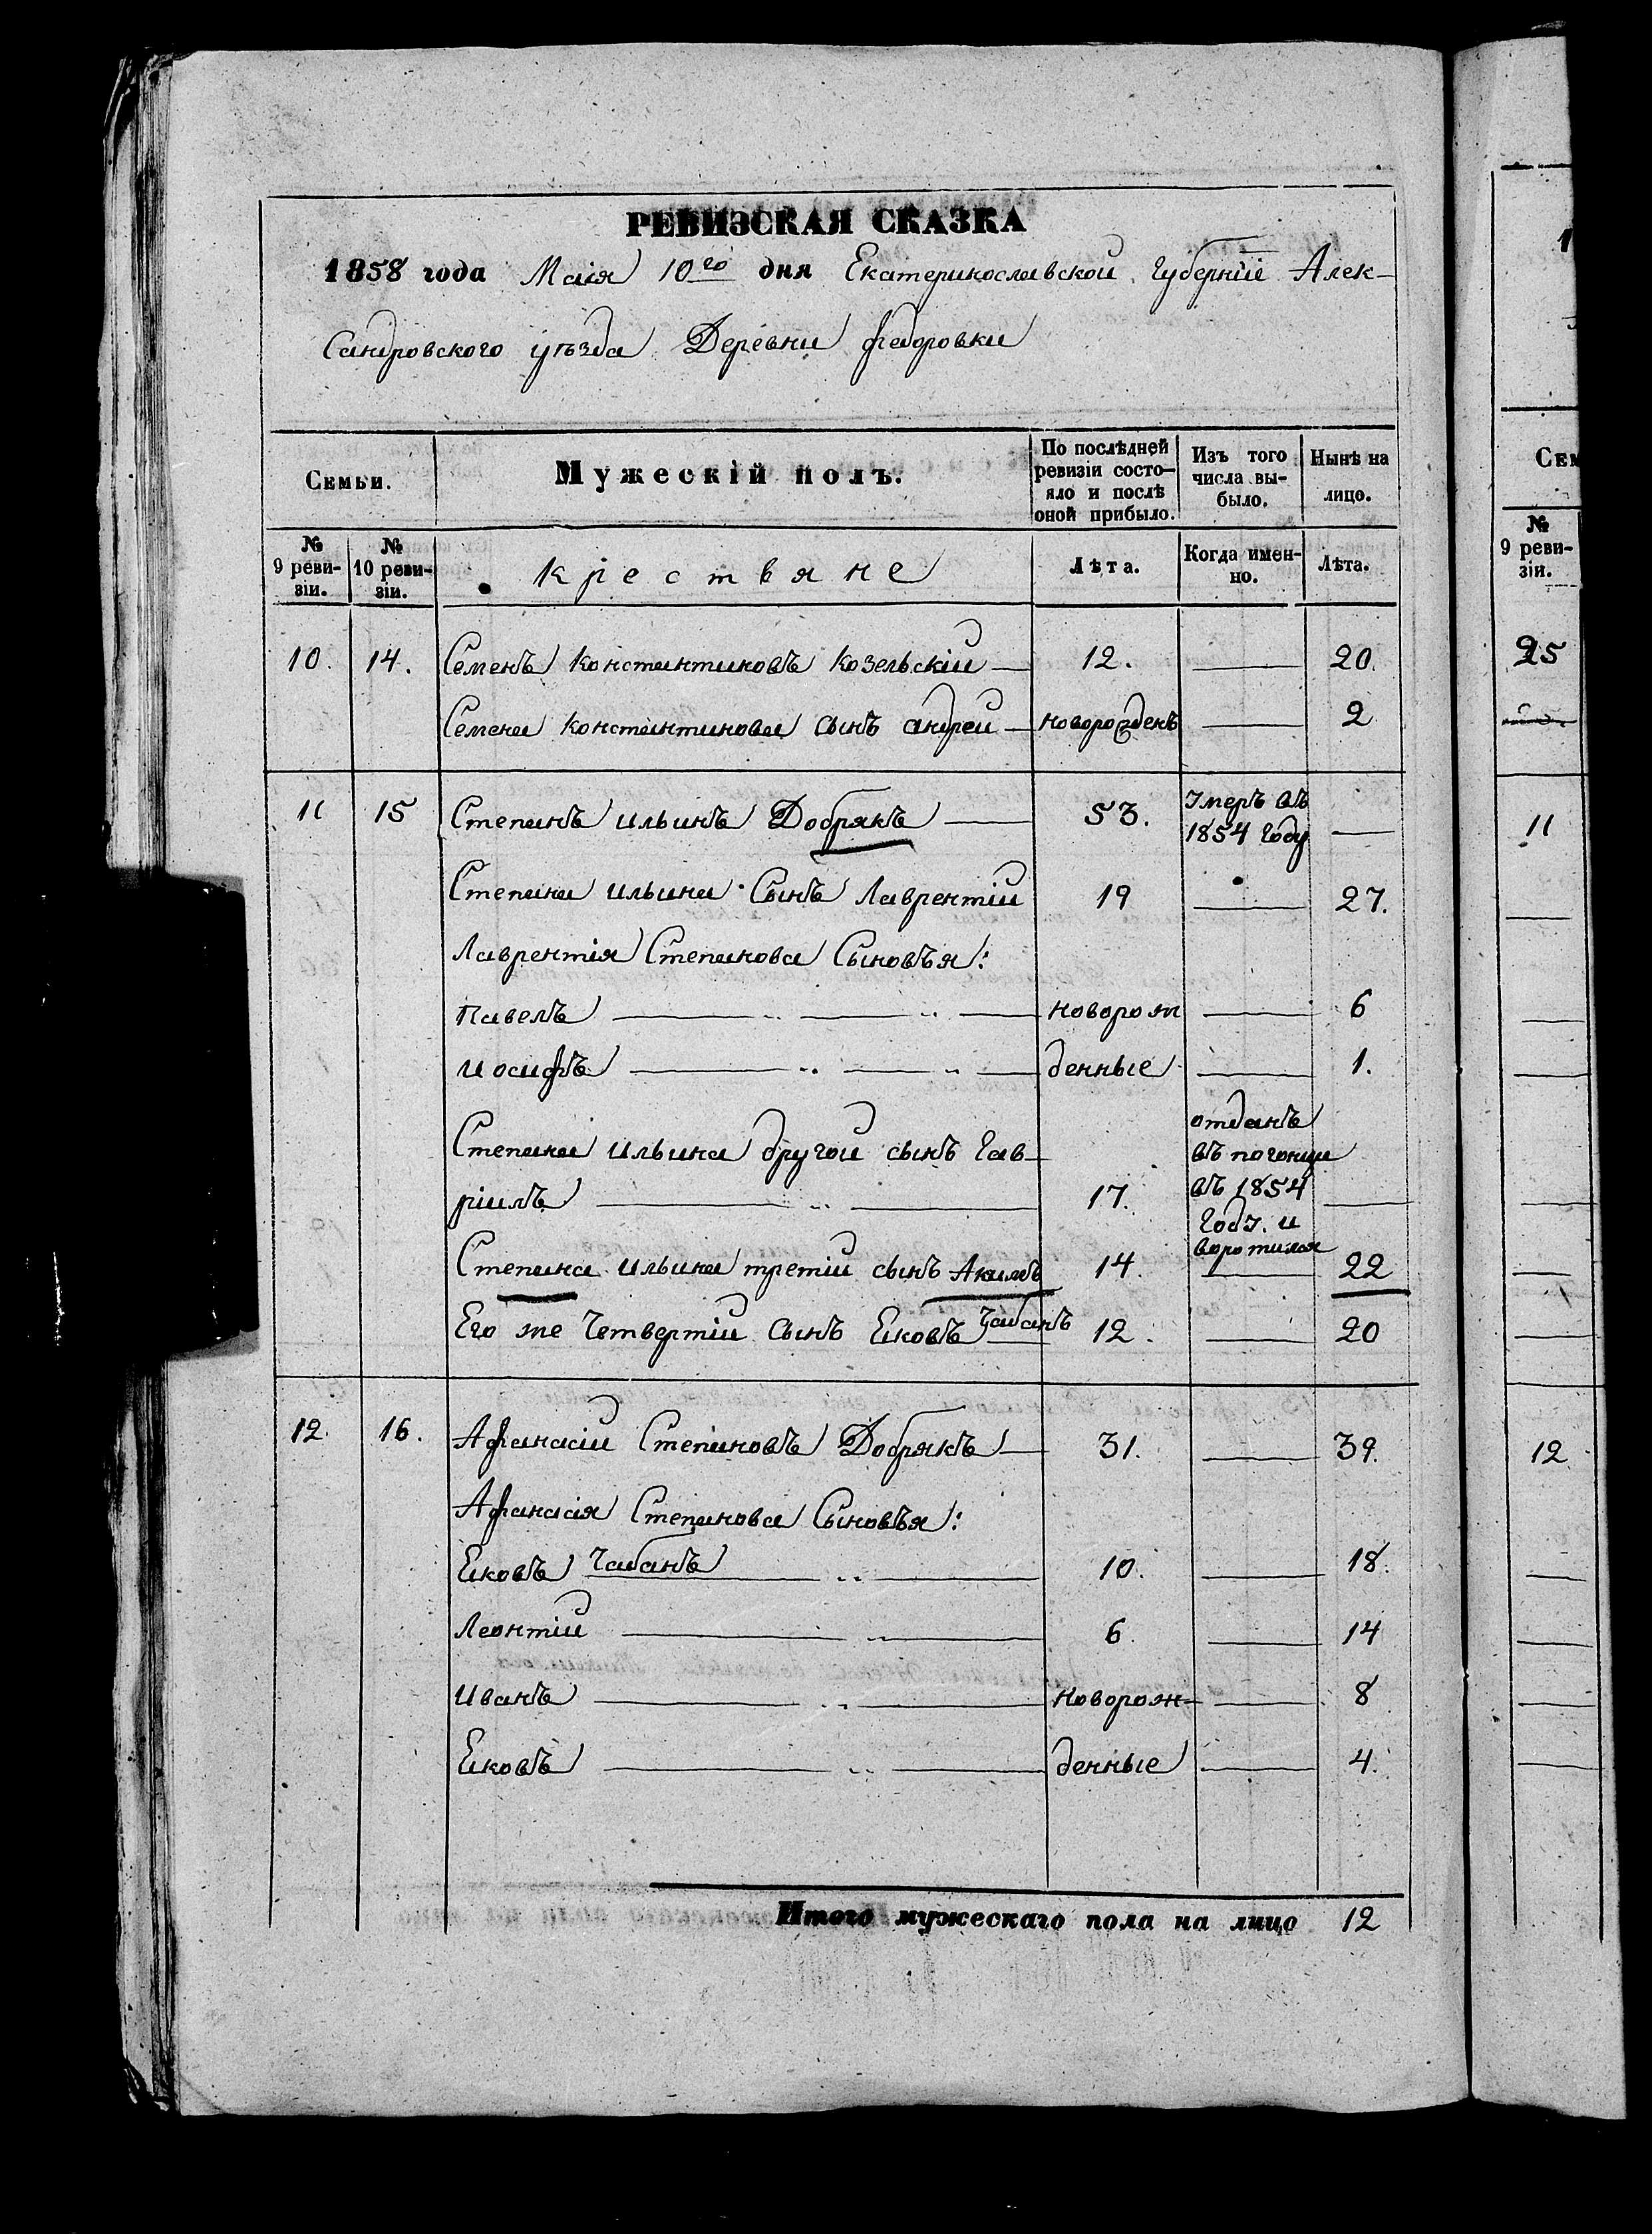 РЕВИЗСКАЯ СКАЗКА
1858 года Маія 10го дня Екатеринославской Губерніи Алек-
сандровского уѣзда Деревни Федоровки
Семьи.
Мужескій полъ.
По послѣдней ревизіи состо-яло и послѣ оной прибыло.
Изъ того числа вы-было.
Нынѣ на лицо.
№ 9 реви-зіи.
№ 10 реви-зіи.
Крестьяне
Лѣта.
Когда имен-но.
Лѣта.
10. 14. Семенъ Константиновъ Козельскій — 12. — 20.
Семена Константинова сынъ андрей — новорожденъ — 2
11 15 Степанъ ильинъ Добрякъ — 53. Умеръ въ 1854 Году —
Степана ильина Сынъ Лаврентій 19 — 27.
Лаврентія Степанова Сыновья:
Павелъ — „ — „ — новорож — 6
иосифъ — „ — „ — денные — 1.
Степана ильина другой сынъ Гав-
ріилъ — „ — 17. отданъ въ погонци въ 1854 Году. и воротился —
Степана ильина третій сынъ Акимъ 14. — 22
Его же Четвертій Сынъ Яковъ Чабанъ 12. — 20
12. 16. Афанасій Степановъ Добрякъ — 31. — 39.
Афанасія Степанова Сыновья:
Яковъ Чабанъ — „ — 10. — 18.
Леонтій — „ — 6. — 14
Иванъ — „ — новорож- — 8
Яковъ — „ — денные — 4.
Итого мужескаго пола на лицо 12
1
Сем
№ 9 реви-зіи.
11
12